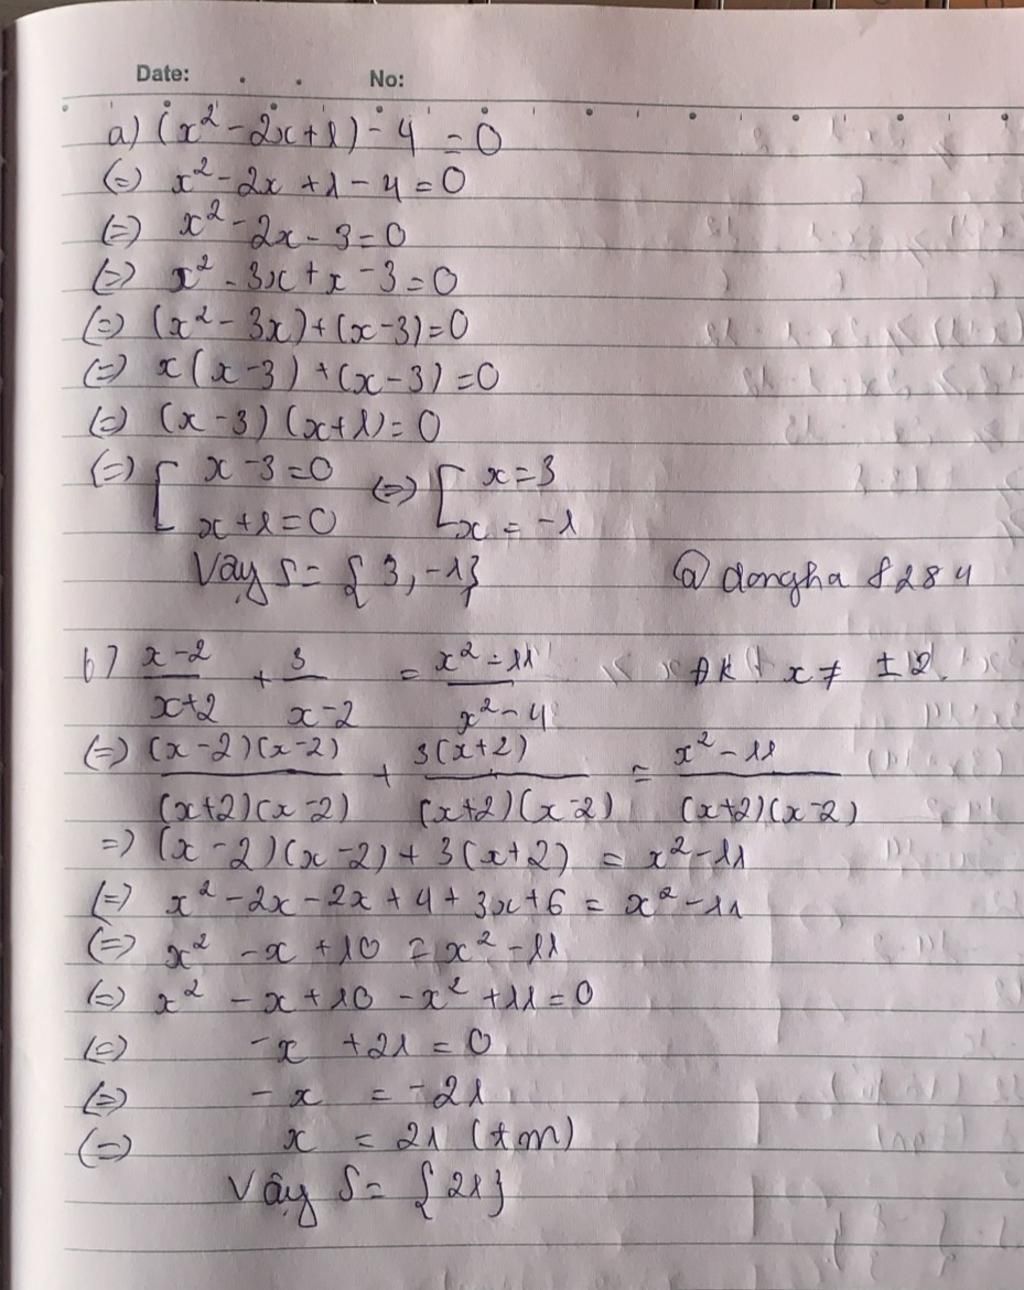 Date: . . No:
a) (x² - 2x + 1) - 4 = 0
(=) x² - 2x + 1 - 4 = 0
(=) x² - 2x - 3 = 0
(=) x² - 3x + x - 3 = 0
(=) (x² - 3x) + (x - 3) = 0
(=) x(x - 3) + (x - 3) = 0
(=) (x - 3)(x + 1) = 0
(=) [ x - 3 = 0 (=) [ x = 3
x + 1 = 0 x = -1
Vậy S = {3, -1} @dongha8284
b) (x - 2)/(x + 2) + 3/(x - 2) = (x² - 11)/(x² - 4) ĐK x ≠ ±2
(=) (x - 2)(x - 2)/(x + 2)(x - 2) + 3(x + 2)/(x + 2)(x - 2) = (x² - 11)/(x + 2)(x - 2)
=) (x - 2)(x - 2) + 3(x + 2) = x² - 11
(=) x² - 2x - 2x + 4 + 3x + 6 = x² - 11
(=) x² - x + 10 = x² - 11
(=) x² - x + 10 - x² + 11 = 0
(=) -x + 21 = 0
(=) -x = -21
(=) x = 21 (tm)
Vậy S = {21}